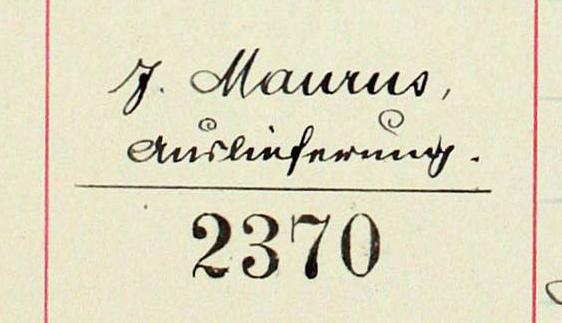 J. Maurus,
Auslieferung.
2370